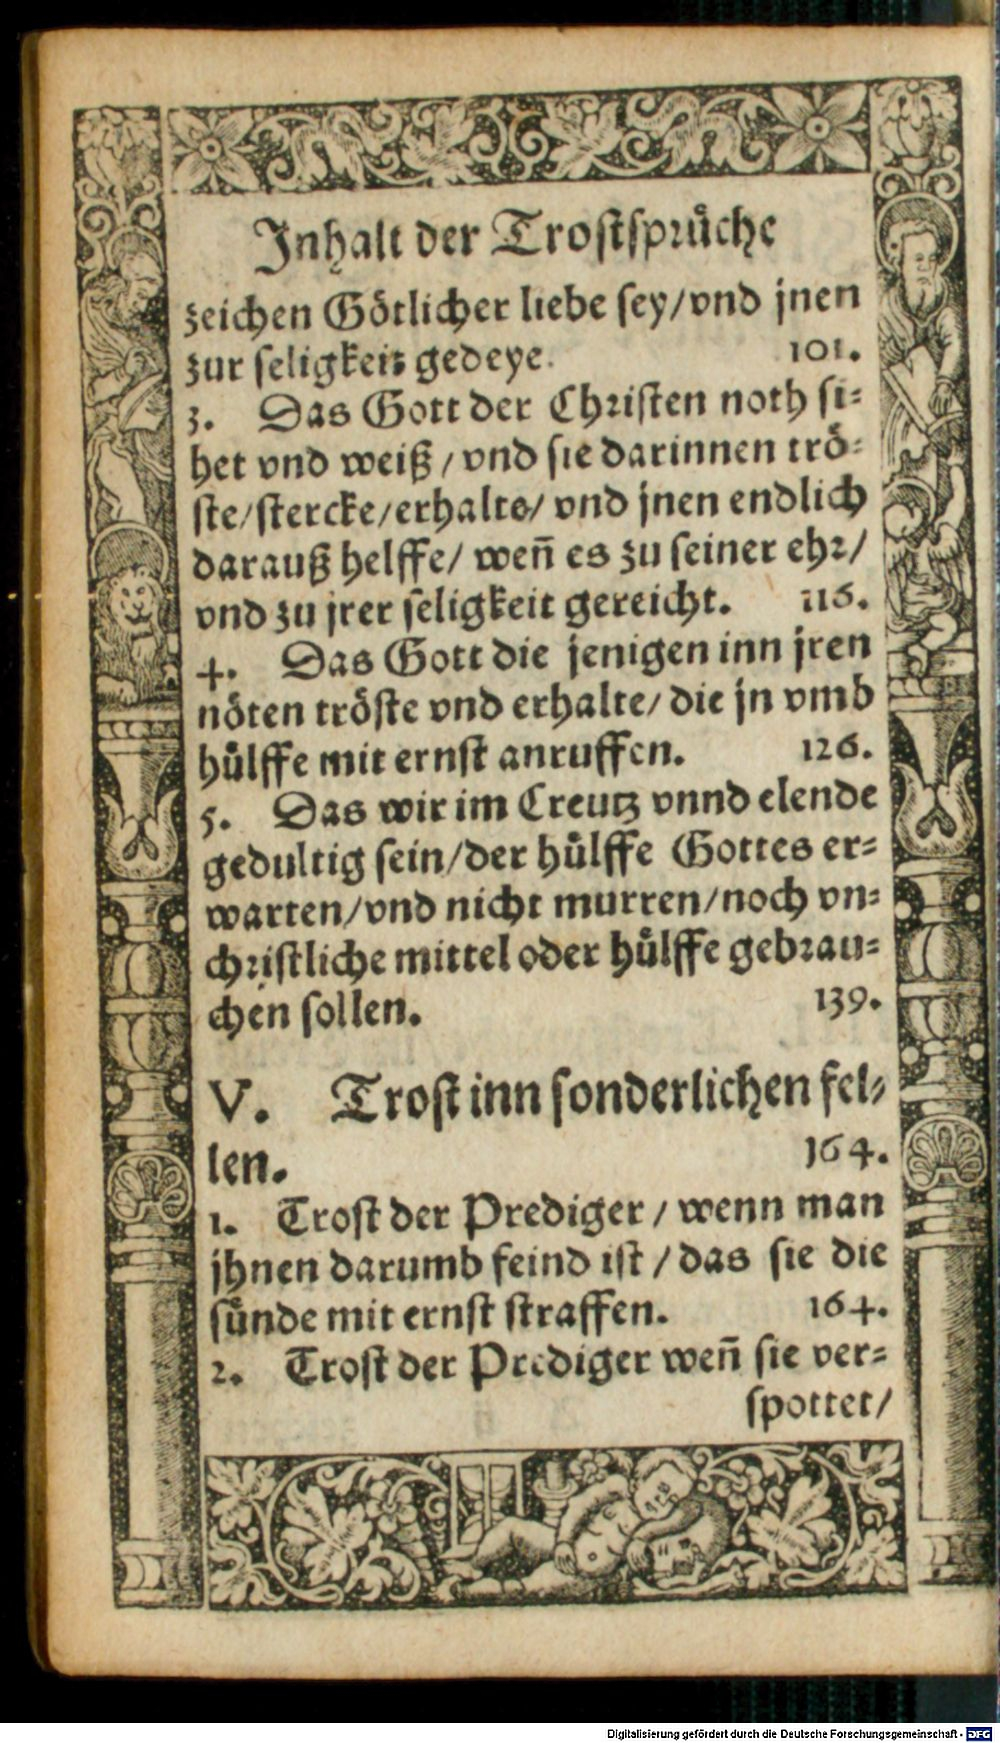 Inhalt der Trostsprüche
zeichen Götlicher liebe sey/vnd jnen
zur seligkeit gedeye. 101.
3. Das Gott der Christen noth si-
het vnd weiß / vnd sie darinnen trö-
ste/stercke/erhalte/ vnd jnen endlich
darauß helffe/ weñ es zu seiner ehr/
vnd zu jrer seligkeit gereicht. 116.
4. Das Gott die jenigen inn jren
nöten tröste vnd erhalte/ die jn vmb
hülffe mit ernst anruffen. 126.
5. Das wir im Creutz vnnd elende
gedultig sein/der hülffe Gottes er-
warten/vnd nicht murren/noch vn-
christliche mittel oder hülffe gebrau-
chen sollen. 139.
V. Trost inn sonderlichen fel-
len. 164.
1. Trost der Prediger / wenn man
jhnen darumb feind ist / das sie die
sünde mit ernst straffen. 164.
2. Trost der Prediger weñ sie ver-
spottet/
Digitalisierung gefördert durch die Deutsche Forschungsgemeinschaft - DFG